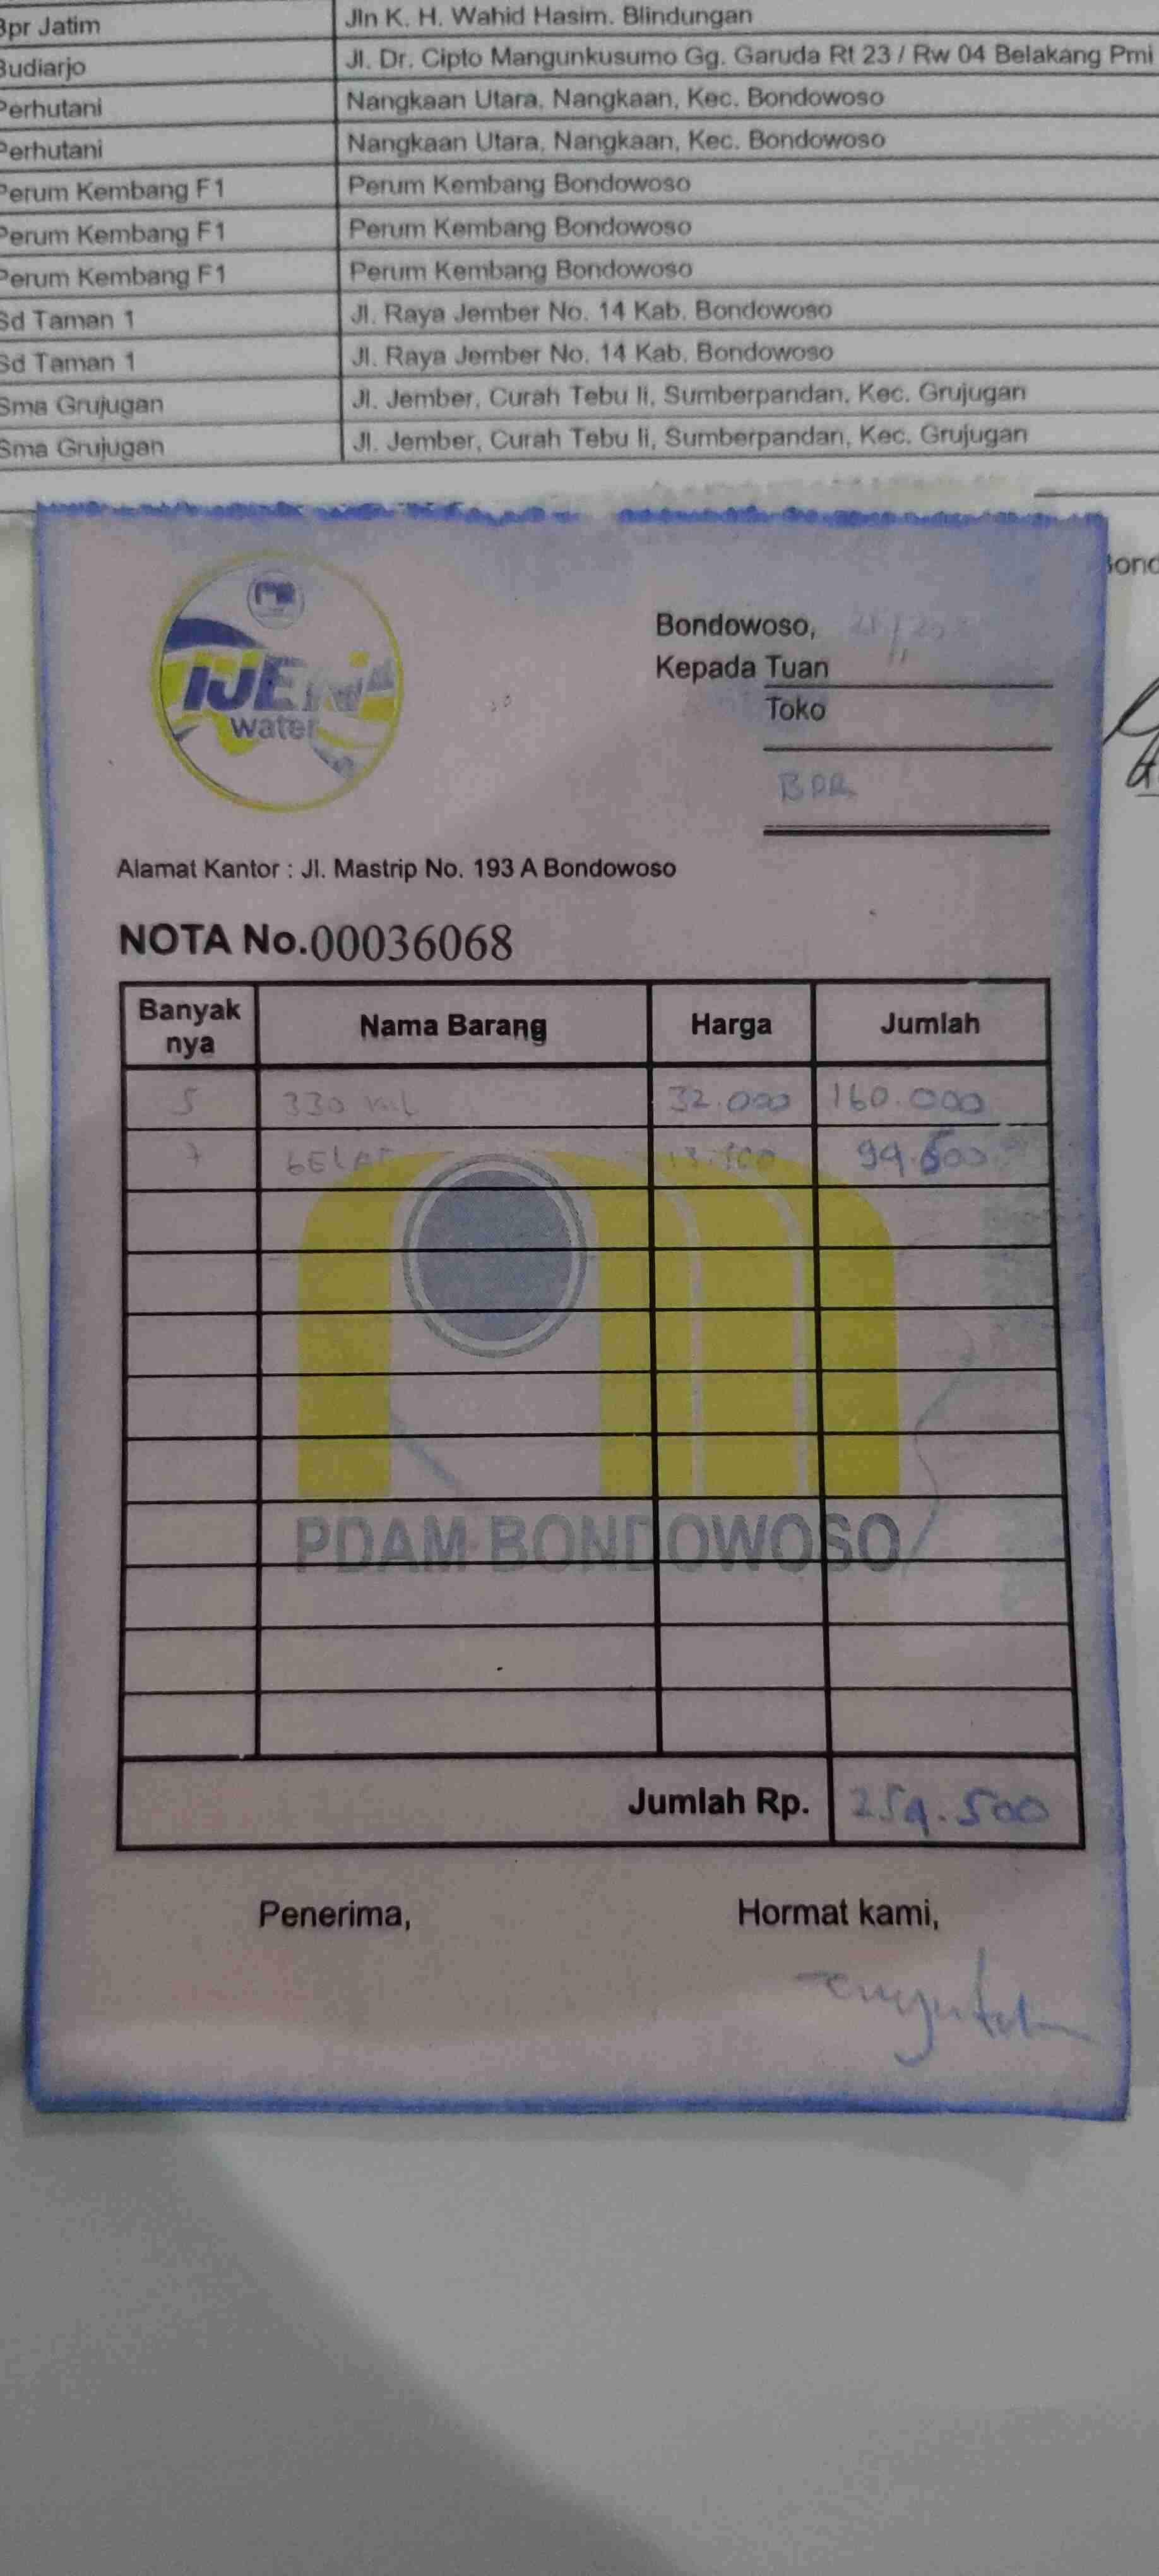 Bpr Jatim Jln K. H. Wahid Hasim. Blindungan
Budiarjo Jl. Dr. Cipto Mangunkusumo Gg. Garuda Rt 23 / Rw 04 Belakang Pmi
Perhutani Nangkaan Utara, Nangkaan, Kec. Bondowoso
Perhutani Nangkaan Utara, Nangkaan, Kec. Bondowoso
Perum Kembang F1 Perum Kembang Bondowoso
Perum Kembang F1 Perum Kembang Bondowoso
Perum Kembang F1 Perum Kembang Bondowoso
Sd Taman 1 Jl. Raya Jember No. 14 Kab. Bondowoso
Sd Taman 1 Jl. Raya Jember No. 14 Kab. Bondowoso
Sma Grujugan Jl. Jember, Curah Tebu Ii, Sumberpandan, Kec. Grujugan
Sma Grujugan Jl. Jember, Curah Tebu Ii, Sumberpandan, Kec. Grujugan
IJEN
water
Bondowoso,
Kepada Tuan
Toko
BPR
Alamat Kantor : Jl. Mastrip No. 193 A Bondowoso
NOTA No.00036068
Banyak nya Nama Barang Harga Jumlah
5 330 ml 32.000 160.000
7 GELAS 94.500
PDAM BONDOWOSO
Jumlah Rp. 254.500
Penerima, Hormat kami,